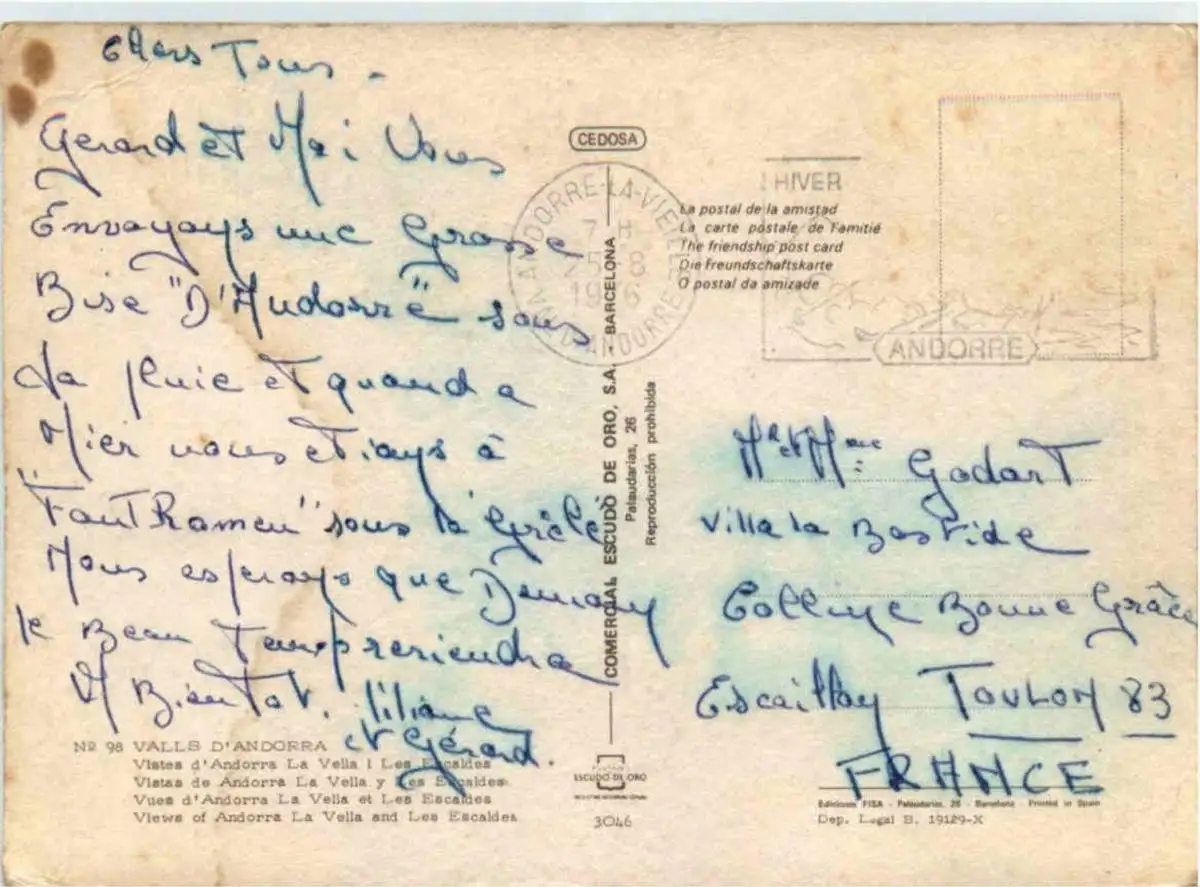 Chers Tous.
Gerard et Moi Vous
Envoyons une Grosse
Bise "D'Andorre" sous
La pluie et quand a
Hier nous etions à
"FontRomeu" sous la Grêle
Nous esperons que Demain
le Beau Temps reviendra
A Bientot. Liliane
et Gérard.
Nº 98 VALLS D'ANDORRA
Vistes d'Andorra La Vella i Les Escaldes
Vistas de Andorra La Vella y Les Escaldes
Vues d'Andorra La Vella et Les Escaldes
Views of Andorra La Vella and Les Escaldes
CEDOSA
ANDORRE-LA-VIEILLE
7 H
25-8
1976
VAL D'ANDORRE
COMERCIAL ESCUDO DE ORO, S.A. BARCELONA
Palaudarias, 26
Reproducción prohibida
ESCUDO DE ORO
3046
HIVER
La postal de la amistad
La carte postale de l'amitié
The friendship post card
Die freundschaftskarte
O postal da amizade
ANDORRE
Mr et Mme Godart
Villa la Bastide
Colline Bonne Grâce
Escaillon TOULON 83
FRANCE
Ediciones FISA - Palaudarias, 26 - Barcelona - Printed in Spain
Dep. Legal B. 19129-X